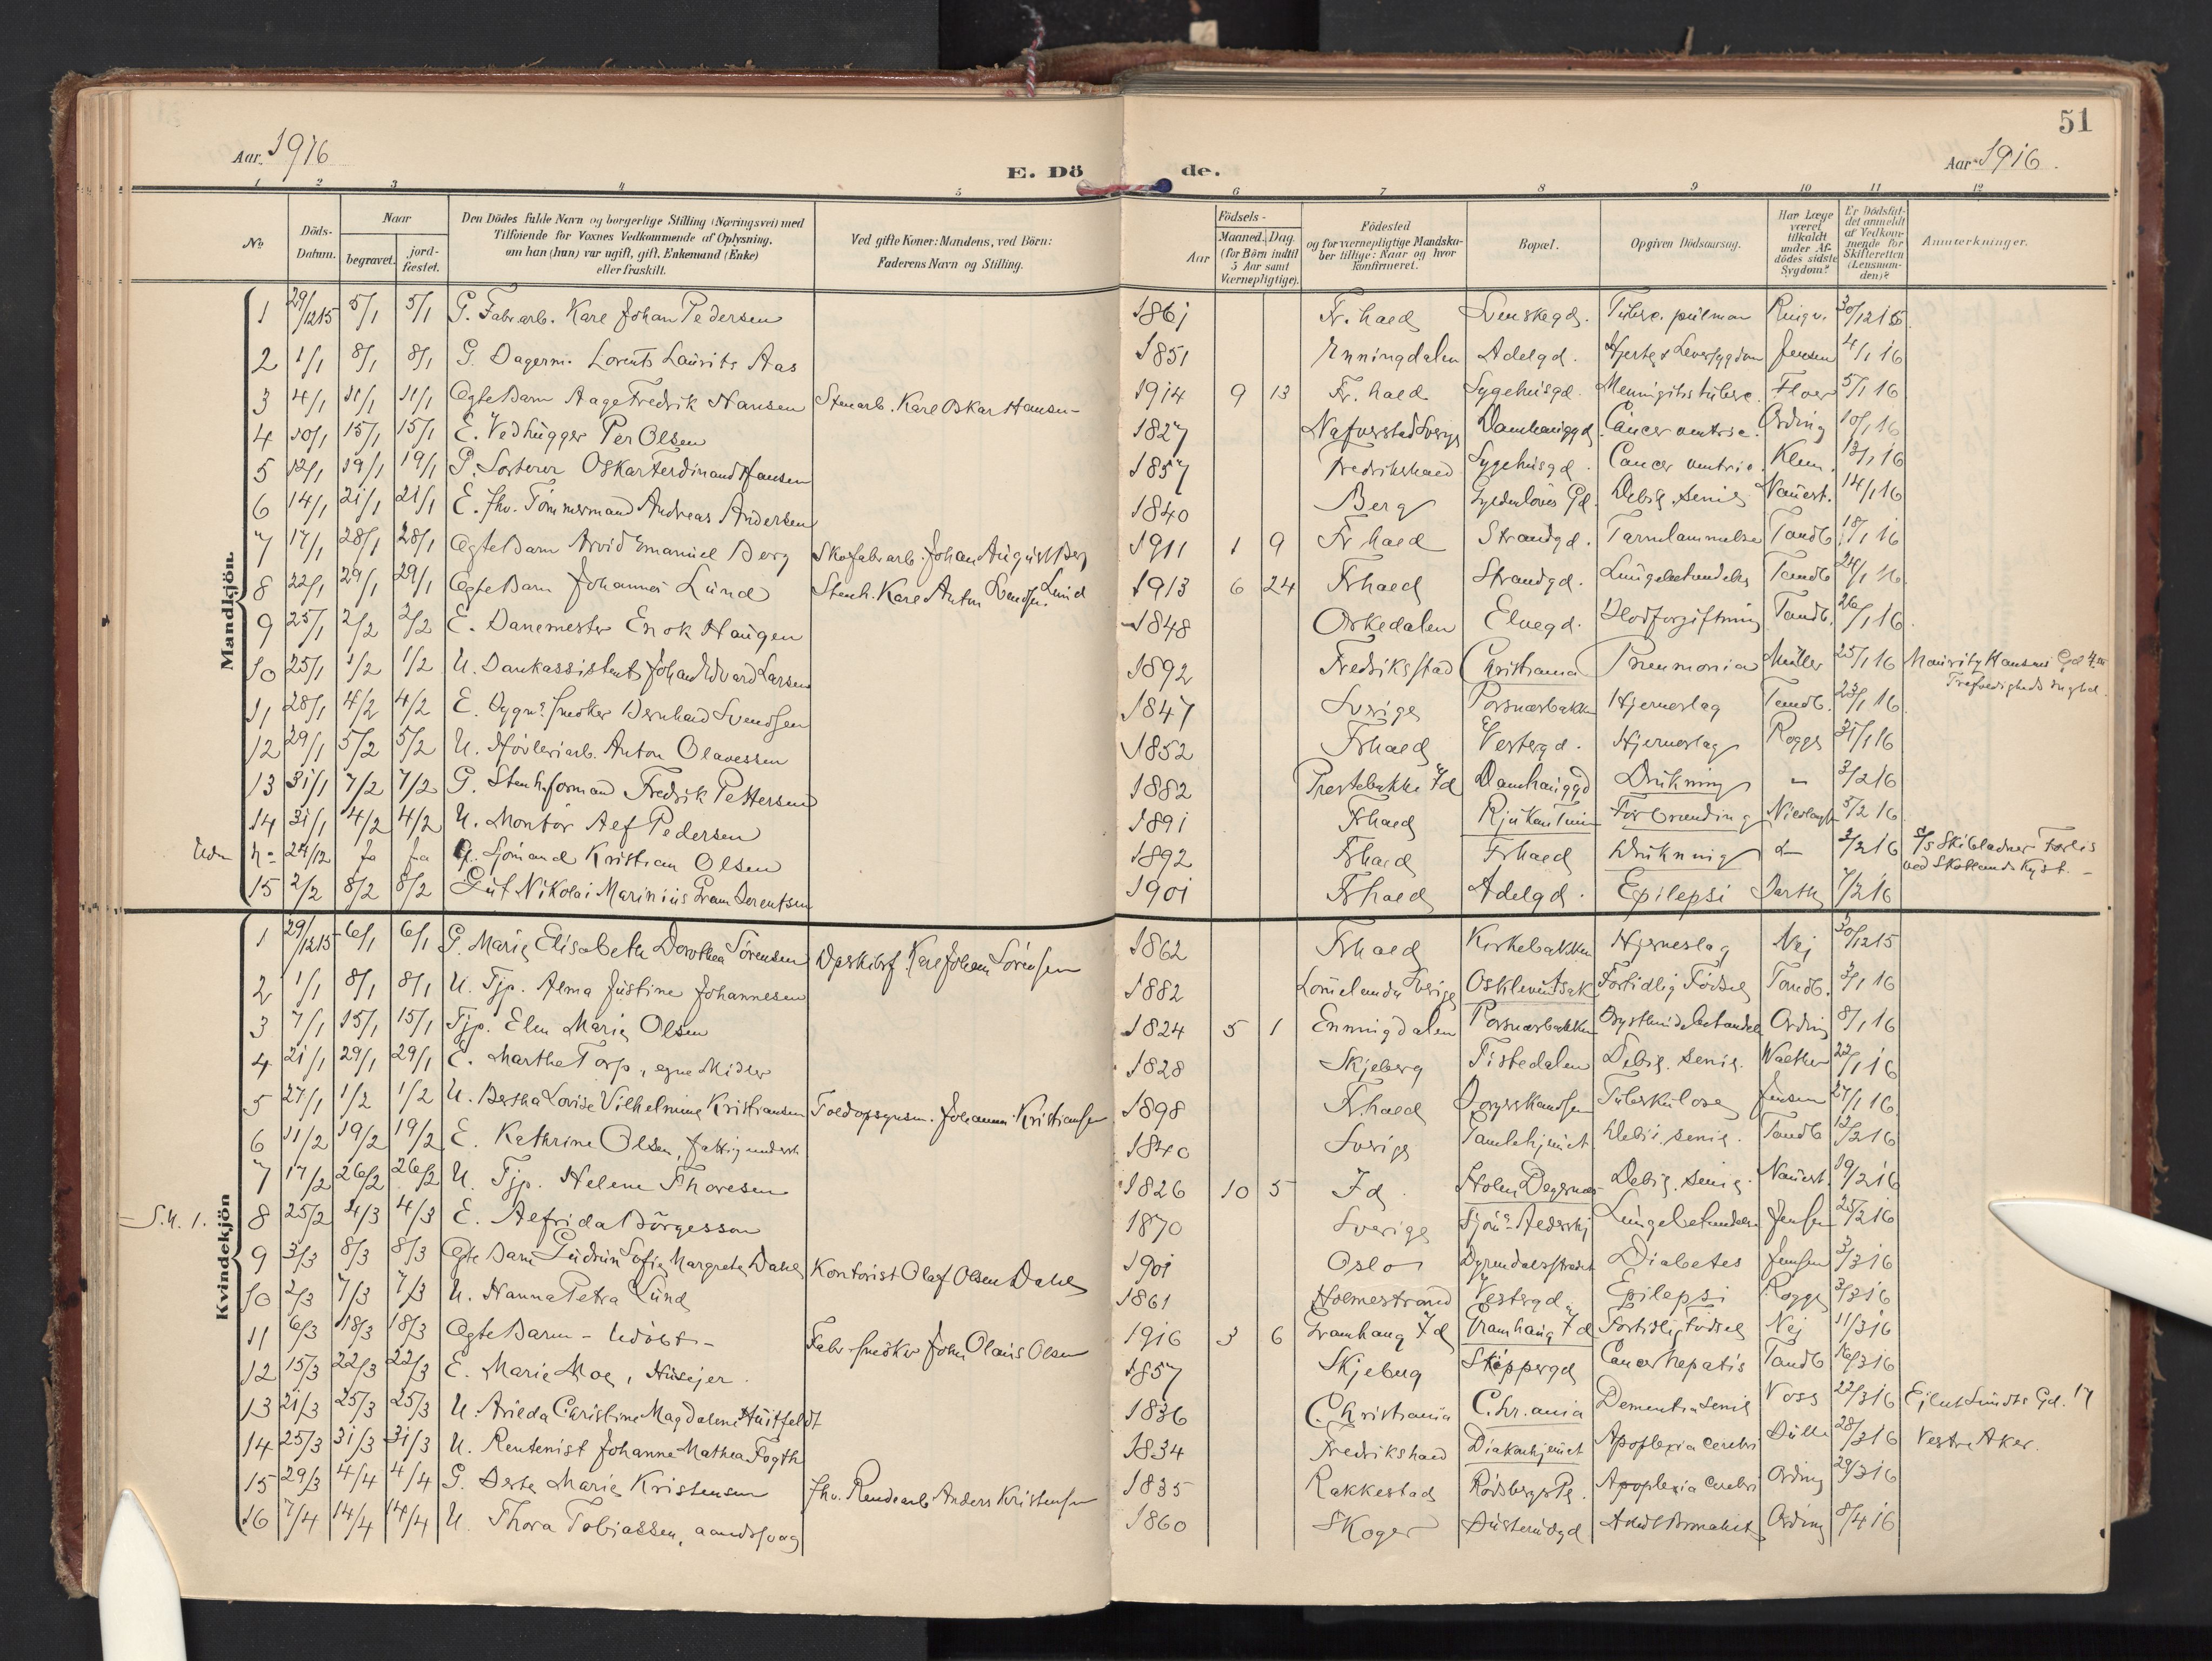 51
Aar. 1916
E. Dö
de.
Aar 1916.
1 2 3 4 5 6 7 8 9 10 11 12
No
Döds-
Datum.
Naar
begravet.
jord-
fæstet.
Den Dödes fulde Navn og borgerlige Stilling (Næringsvei) med
Tilföiende for Voxnes Vedkommende af Oplysning,
om han (hun) var ugift, gift, Enkemand (Enke)
eller fraskilt.
Ved gifte Koner: Mandens, ved Börn:
Faderens Navn og Stilling.
Födsels-
Aar
Maaned. Dag.
(for Börn indtil
5 Aar samt
Værnepligtige).
Födested
og for værnepligtige Mandska-
ber tillige: Naar og hvor
konfirmeret.
Bopæl.
Opgiven Dödsaarsag.
Har Læge
været
tilkaldt
under Af-
dödes sidste
Sygdom?
Er Dödsfal-
det anmeldt
af Vedkom-
mende for
Skifteretten
(Lensman-
den)?
Anmerkninger.
Mandkjön.
1 29/12 15 5/1 5/1 G. Fabrarb. Karl Johan Pedersen 1861 Fr.hald Svenskegd. Tuberc. pulmon 30/12 15
2 1/1 8/1 8/1 G. Lorents Laurits Aas 1851 Enningdalen Adelgd. Hjerte & Leversygdom Jensen 4/1 16
3 4/1 11/1 11/1 Ægte Barn Aage Fredrik Hansen Stenarb. Karl Oskar Hansen 1914 9 13 Fr.hald Sygehusgd. Meningitis tuberc. Floer 5/1 16
4 10/1 15/1 15/1 E. Vedhugger Per Olsen 1827 Nafverstad Sverge Damhauggd. Cancer ventric. Ording 10/1 16
5 12/1 19/1 19/1 G. Sorterer Oskar Ferdinand Hansen 1857 Fredrikshald Sygehusgd. Cancer ventric. Klem. 13/1 16
6 14/1 21/1 21/1 E. Fhv. Tömmermand Andreas Andersen 1840 Berg Gyldenlöves Gd. Debil. senil 14/1 16
7 17/1 28/1 28/1 Ægte Barn Arvid Emanuel Berg Skofabrarb. Johan August Berg 1911 1 9 Fr hald Strandgd. Tarmlammelse Tandb. 18/1 16
8 22/1 29/1 29/1 Ægte Barn Johannes Lund Stenh. Karl Anton Svendsen Lund 1913 6 24 Frhald Strandgd. Lungebetændelse Tandb 24/1 16
9 25/1 2/2 2/2 E. Banemester Enok Haugen 1848 Orkedalen Elvegd. Blodforgiftning Tandb. 26/1 16
10 25/1 1/2 1/2 U. Bankassistent Johan Edvard Larsen 1892 Fredriksstad Christiania Pneumonia Müller 25/1 16 Mauritz Hansens Gd 4
11 28/1 4/2 4/2 E. Bygns. snedker Bernhard Svendsen 1847 Sverige Porsnæsbakken Hjerneslag Tandb. 16
12 29/1 5/2 5/2 U. Høvleriarb. Anton Olavessen 1852 Frhald Vestergd. Hjerneslag Rogge 31/1 16
13 31/1 7/2 7/2 G. Stenh.formand Fredrik Pettersen 1882 Prestebakke Id Damhauggd Drukning - 3/2 16
14 31/1 4/2 4/2 U. Montör Alf Pedersen 1891 Frhald Rjukan Tinn Forbrænding 5/2 16
24/12 Sjömand Kristian Olsen 1892 Frhald Frhald Drukning 2/2 16 S/S Skibladner Forlis
ved Skotlands Kyst. -
15 2/2 8/2 8/2 Gut Nikolai Marinius Gram Berentsen 1901 Frhald Adelgd. Epilepsi Barth 7/2 16
Kvindekjön
1 29/12 15 6/1 6/1 G. Marie Elisabeth Dorothea Sörensen Karl Johan Sörensen 1862 Frhald Kirkebakken Hjerneslag Nej 30/12 15
2 1/1 8/1 8/1 U. Tjp. Alma Justine Johannesen 1882 Sverige Fortidlig Födsel Tandb. 3/1 16
3 7/1 15/1 15/1 Tjp. Elen Marie Olsen 1824 5 1 Enningdalen Porsnæsbakken Ording 8/1 16
4 21/1 29/1 29/1 E. Marthe Torp, egne Midler 1828 Skjeberg Tistedalen Debil. senil. Walther 22/1 16
5 27/1 1/2 1/2 U. Bertha Lovise Vilhelmine Kristiansen Toldopsynsm. Johannes Kristiansen 1898 Fr.hald Tuberkulose Jensen 27/1 16
6 11/2 19/2 19/2 E. Kathrine Olsen, fattigunderst. 1840 Sverige Gamlehjemmet Debil. senil. Tandb 12/2 16
7 17/2 26/2 26/2 U. Tjp. Helene Thoresen 1826 10 5 Id. Holm Degernæs Debil. senil. 19/2 16
S.H. 1. 8 25/2 4/3 4/3 E. Alfrida Börgesson 1870 Sverige Sjöms. Aldershj Lungebetændelse Jensen 25/2 16
9 3/3 8/3 8/3 Ægte Barn Gudrun Sofie Margrete Dahl Kontorist Olaf Olsen Dahl 1901 Oslo Dyrendalsstrædet Diabetes Jensen 3/3 16
10 2/3 7/3 7/3 U. Hanna Petra Lund 1861 Holmestrand Vestergd. Epilepsi Rogge 3/3 16
11 6/3 18/3 18/3 Ægte Barn - Udöbt - Fabr-snedker John Olaus Olsen 1916 3 6 Gramhaug Id Gramhaug Id Fortidlig Födsel Nej 11/3 16
12 15/3 22/3 22/3 E. Marie Moe, Husejer. 1857 Skjeberg Skippergd Cancer hepatis Tandb 16/3 16
13 21/3 25/3 25/3 U. Arilda Christine Magdalene Huitfeldt 1836 Christiania Chr.ania Dementia senil Voss 22/3 16 Eilert Sundts Gd. 17
14 25/3 31/3 31/3 U. Rentenist Johanne Mathea Fogth 1834 Fredrikshald Diakonhjemmet Apoplexia cerebri 28/3 16 Vestre Aker.
15 29/3 4/4 4/4 G. Berte Marie Kristensen Fhv. Anders Kristensen 1835 Rakkestad Rödsbergs Pl. Apoplexia cerebri Ording 29/3 16
16 7/4 14/4 14/4 U. Thora Tobiassen, aandssvag 1860 Skoger Ording 8/4 16